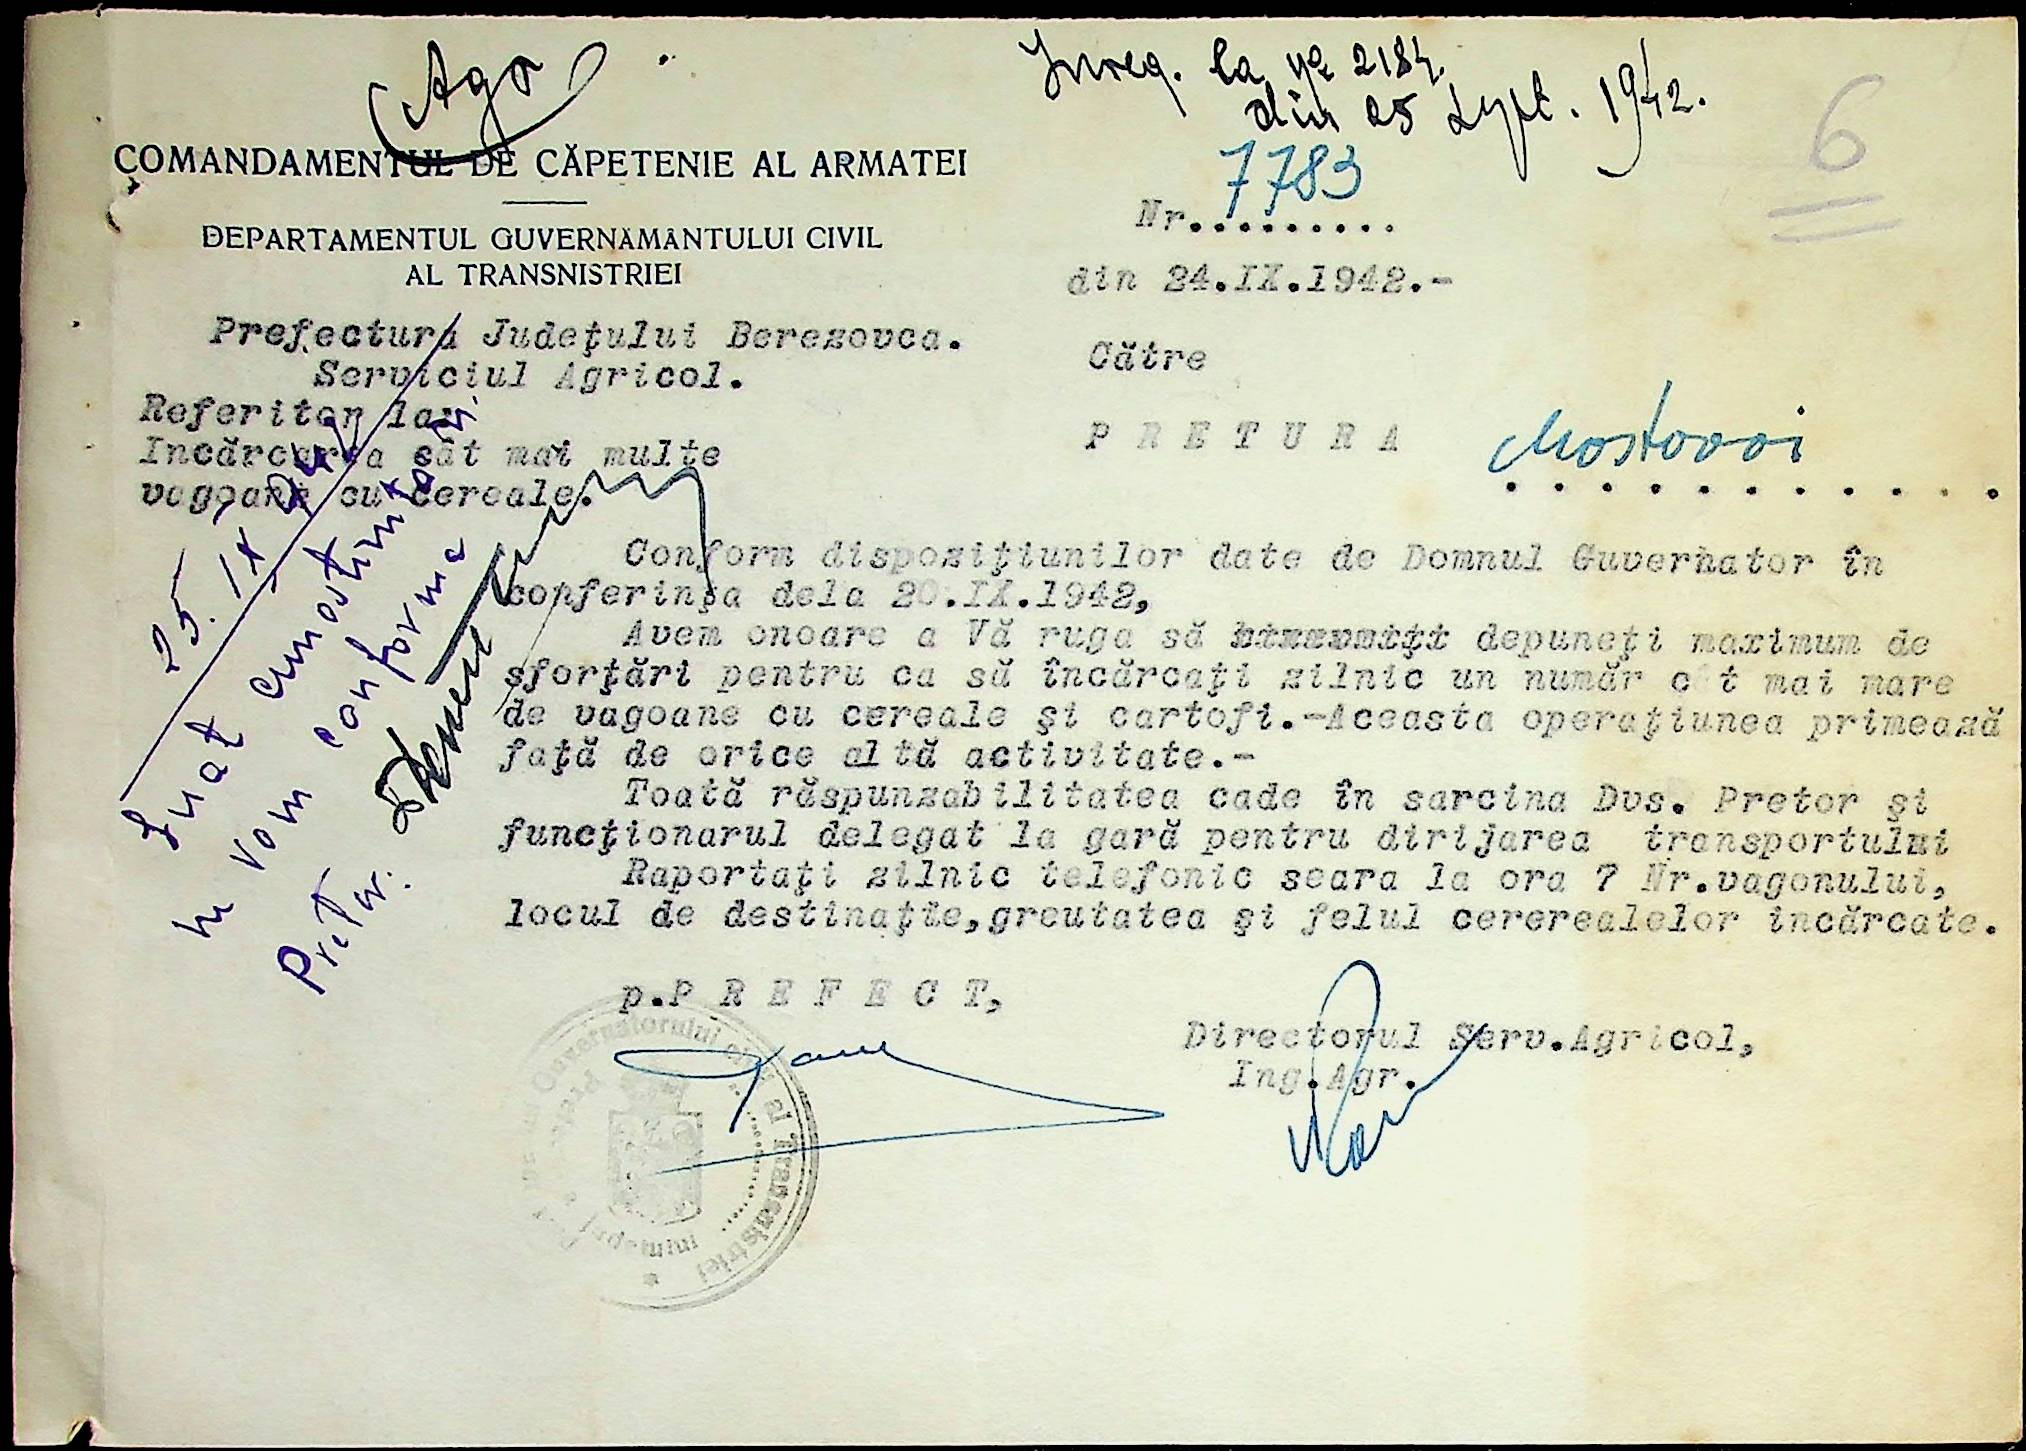 Agr
Inreg. la No 2184.
din 25 Sept. 1942.
6
COMANDAMENTUL DE CĂPETENIE AL ARMATEI
DEPARTAMENTUL GUVERNĂMÂNTULUI CIVIL
AL TRANSNISTRIEI
Nr. 7783
din 24.IX.1942.-
Prefectura Judeţului Berezovca.
Serviciul Agricol.
Referitor la:
Incărcarea cât mai multe
vagoane cu cereale.
Către
P R E T U R A Mostovoi
Conform dispoziţiunilor date de Domnul Guvernator în
conferinţa dela 20.IX.1942,
Avem onoare a Vă ruga să depuneţi maximum de
sforţări pentru ca să încărcaţi zilnic un număr cât mai mare
de vagoane cu cereale şi cartofi.-Aceasta operaţiunea primează
faţă de orice altă activitate.-
Toată răspunzabilitatea cade în sarcina Dvs. Pretor şi
funcţionarul delegat la gară pentru dirijarea transportului
Raportaţi zilnic telefonic seara la ora 7 Nr.vagonului,
locul de destinaţie,greutatea şi felul cererealelor incărcate.
25. IX 942
Luat cunostinta si
ne vom conforma
Pretor.
p.P R E F E C T,
Directorul Serv.Agricol,
Ing.Agr.
Guvernatorului
al Transnistriei